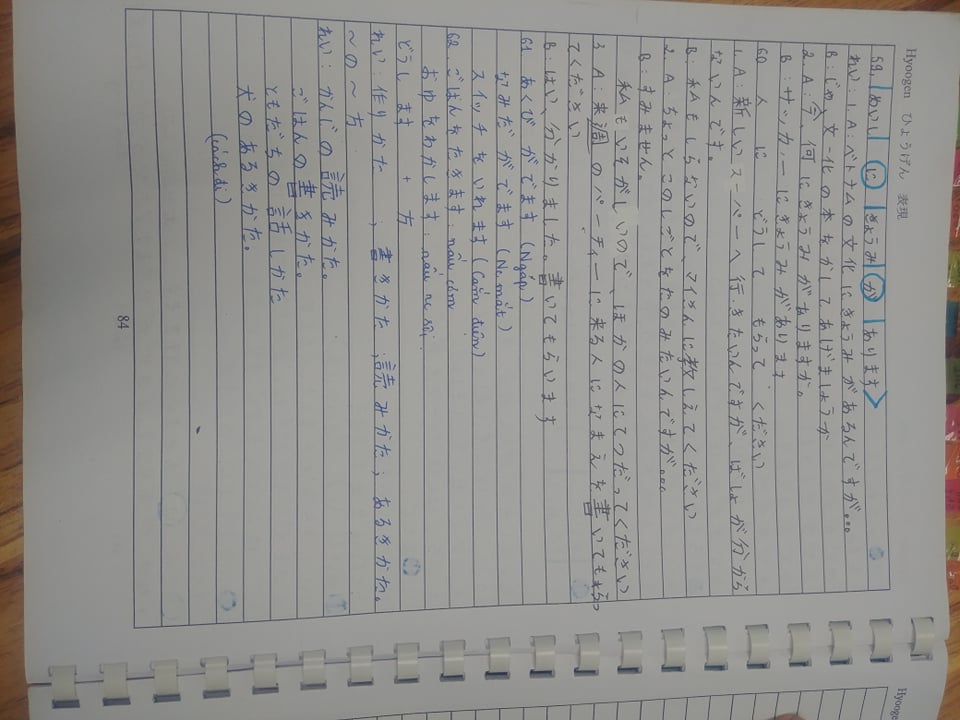 Hyoogen ひょうげん 表現
59. めいし に きょうみ が あります
れい: 1. A: ベトナムの文化にきょうみがあるんですが...
B: じゃ、文化の本をかしてあげましょうか
2. A: 今、何にきょうみがありますか。
B: サッカーにきょうみがあります
60 人 に どうして もらって ください
1. A: 新しいスーパーへ行きたいんですが、ばしょが分から
ないんです。
B: 私もしらないので、マイさんに教しえてください
2. A: ちょっとこのしごとをたのみたいんですが...
B: すみません。
私もいそがしいので、ほかの人にてつだってください
3 A: 来週のパーティーに来る人になまえを書いてもらっ
てください
B: はい、分かりました。書いてもらいます
61 あくびがでます (Ngáp)
なみだがでます (Nc mắt)
スイッチをいれます (Cắm điện)
62. ごはんをたきます: nấu cơm
おゆをわかします: nấu nc sôi
どうします + 方
れい: 作りかた ; 書きかた ; 読みかた ; あるきかた。
~の~方
れい: かんじの読みかた。
ごはんの書きかた。
ともだちの話しかた
犬のあるきかた。
(cách đi)
84
Hyooge